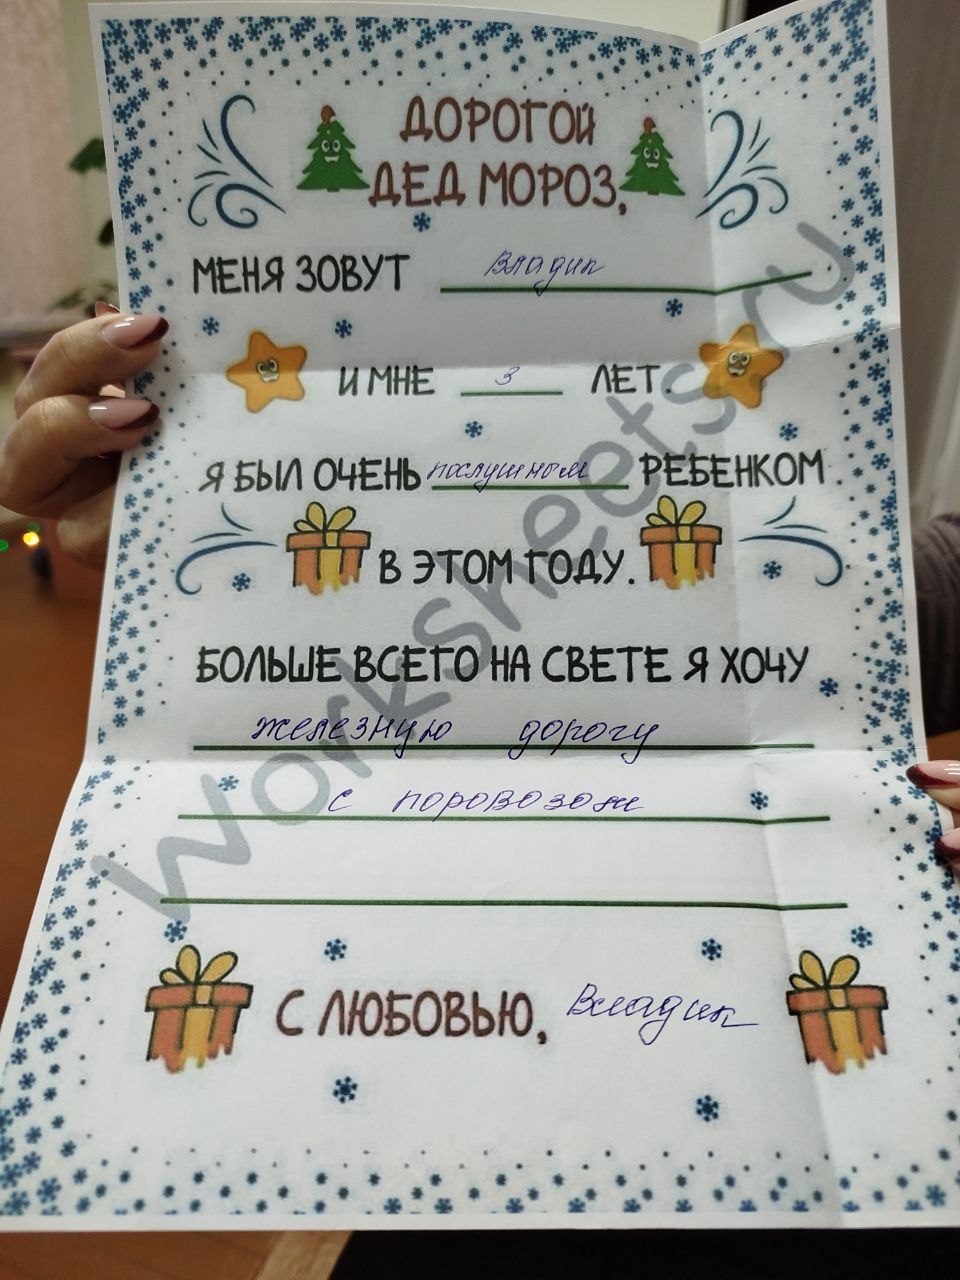 ДОРОГОЙ
ДЕД МОРОЗ,
МЕНЯ ЗОВУТ Владик
И МНЕ 3 ЛЕТ
Я БЫЛ ОЧЕНЬ послушным РЕБЕНКОМ
В ЭТОМ ГОДУ.
БОЛЬШЕ ВСЕГО НА СВЕТЕ Я ХОЧУ
железную дорогу
с поровозом
С ЛЮБОВЬЮ, Владик
worksheets.ru